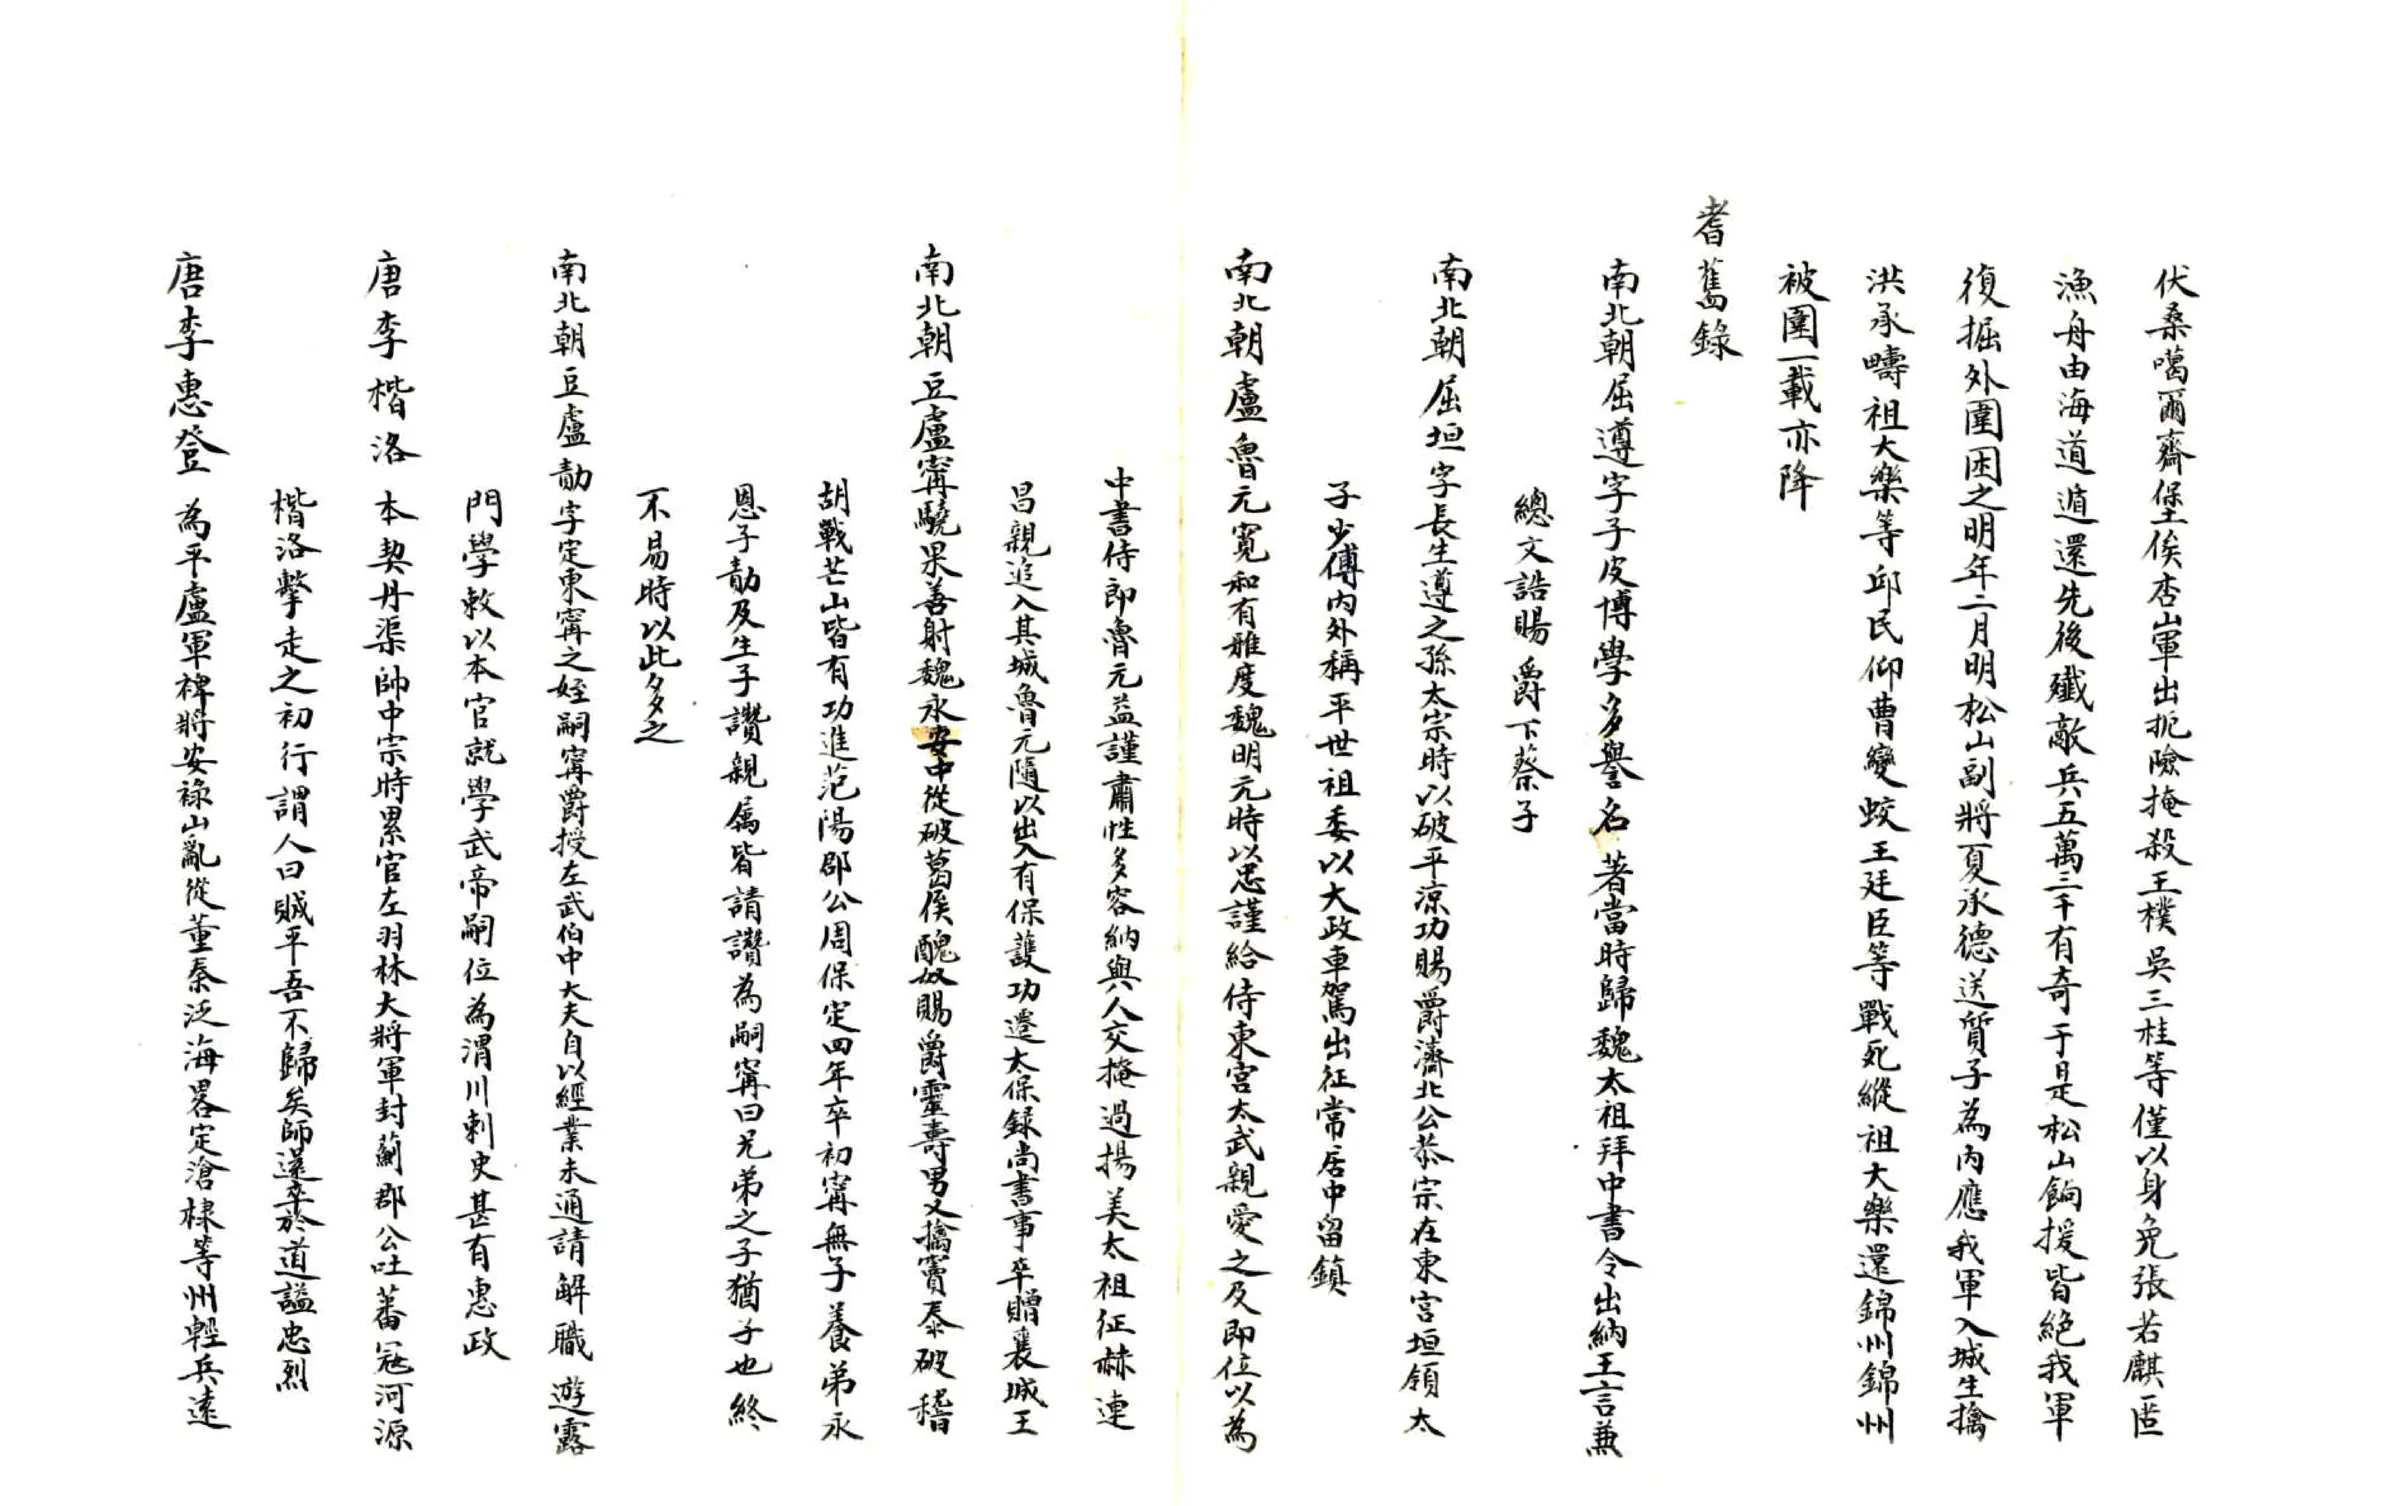 伏桑噶爾齋堡俟杏山軍出扼險掩殺王樸吳三桂等僅以身免張若麒匿
漁舟由海道遁還先後殲敵兵五萬三千有奇于是松山餉援皆絕我軍
復掘外圍困之明年二月明松山副將夏承德送質子為內應我軍入城生擒
洪承疇祖大樂等邱民仰曹變蛟王廷臣等戰死縱祖大樂還錦州錦州
被圍一載亦降
耆舊錄
南北朝屈遵字子皮博學多譽名著當時歸魏太祖拜中書令出納王言兼
總文誥賜爵下蔡子
南北朝屈垣字長生遵之孫太宗時以破平涼功賜爵濟北公恭宗在東宮垣領太
子少傅內外稱平世祖委以大政車駕出征常居中留鎮
南北朝盧魯元寬和有雅度魏明元時以忠謹給侍東宮太武親愛之及即位以為
中書侍郎魯元益謹肅性多容納與人交掩過揚美太祖征赫連
昌親追入其城魯元隨以出入有保護功遷太保録尚書事卒贈襄城王
南北朝豆盧寗驍果善射魏永安中從破葛俟醜奴賜爵靈壽男又擒竇泰破稽
胡戰芒山皆有功進范陽郡公周保定四年卒初寗無子養弟永
恩子勣及生子讚親属皆請讚為嗣寗曰兄弟之子猶子也終
不易時以此多之
南北朝豆盧勣字定東寗之姪嗣寗爵授左武伯中大夫自以經業未通請解職遊露
門學敕以本官就學武帝嗣位為渭川刺史甚有惠政
唐李楷洛本契丹渠帥中宗時累官左羽林大將軍封薊郡公吐蕃冦河源
楷洛擊走之初行謂人曰賊平吾不歸矣師還卒於道謚忠烈
唐李惠登為平盧軍裨將安祿山亂從董秦泛海畧定滄棣等州輕兵遠